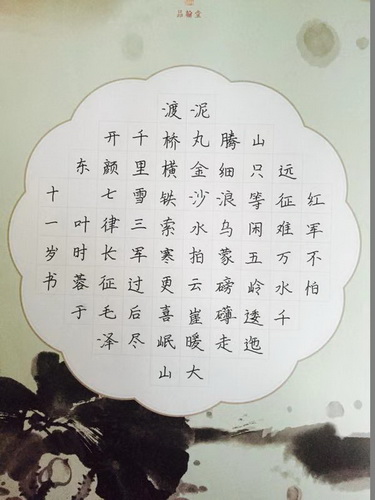 品翰堂
红军不怕
远征难万水千
山只等闲五岭逶迤
腾细浪乌蒙磅礴走
泥丸金沙水拍云崖暖大
渡桥横铁索寒更喜岷山
千里雪三军过后尽
开颜七律长征毛泽
东叶时蓉于
十一岁书